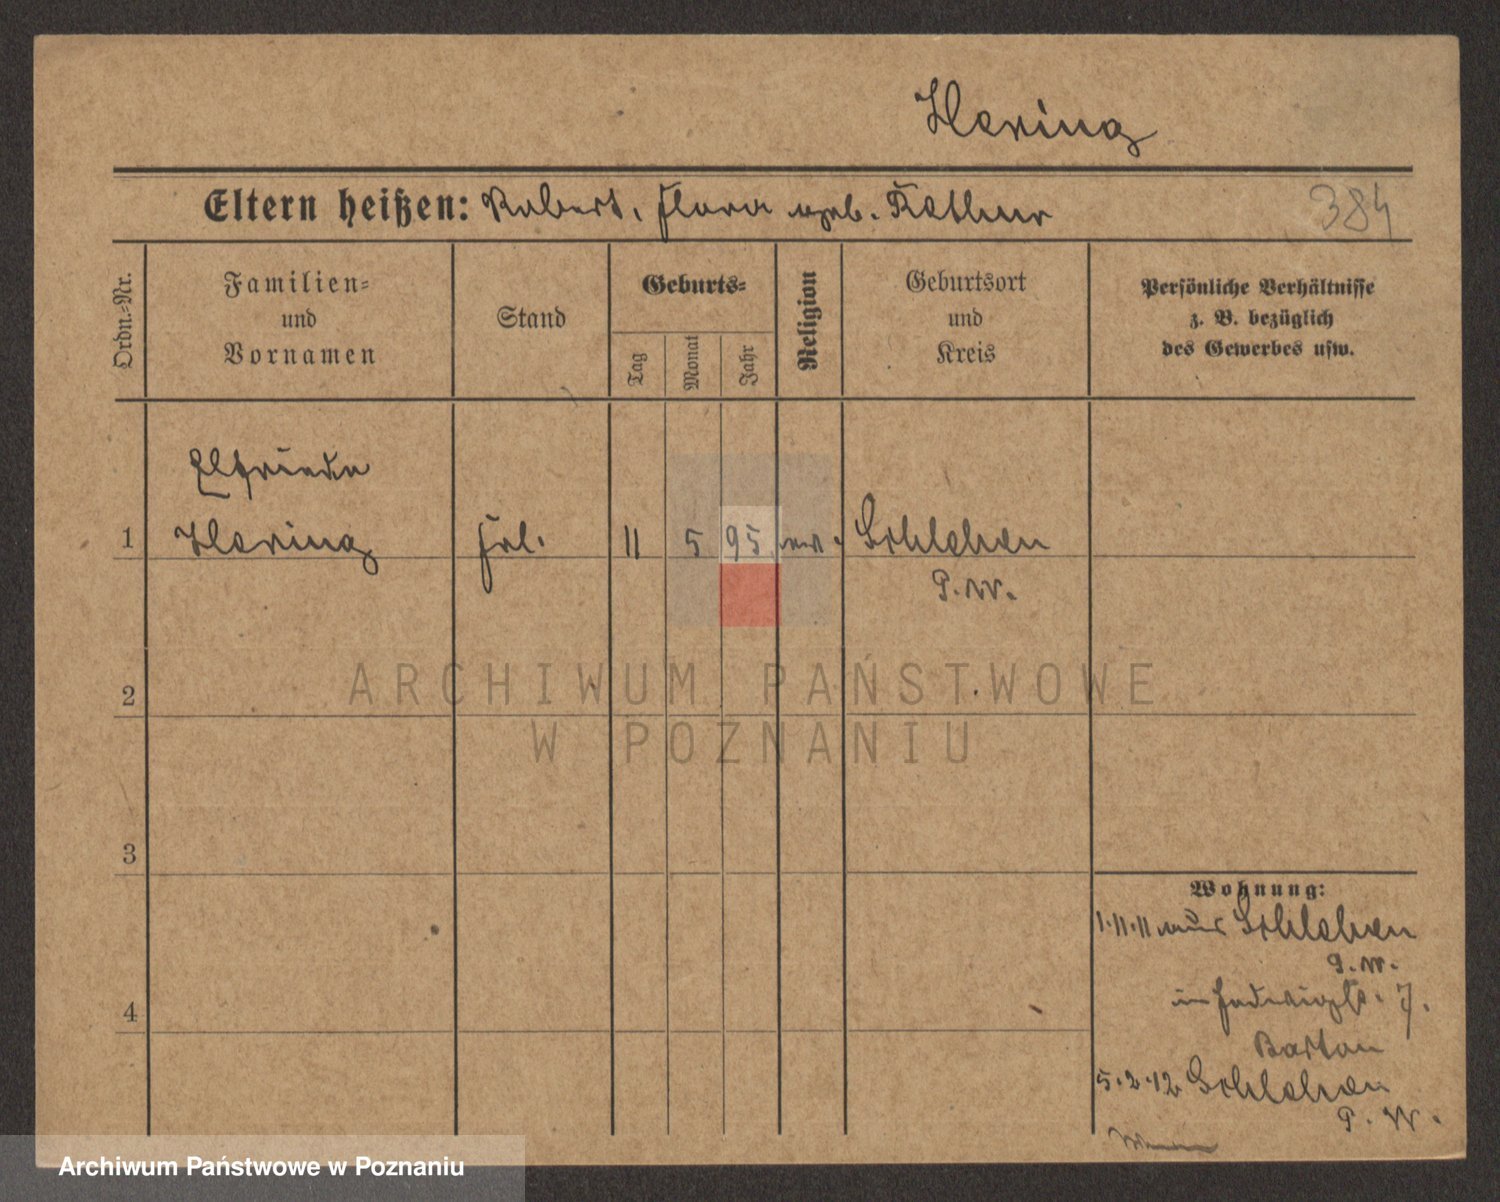 Hering
Eltern heißen: Robert, Flora geb. Kathur
384
Ordn.-Nr.
Familien-
und
Vornamen
Stand
Geburts-
Tag
Monat
Jahr
Religion
Geburtsort
und
Kreis
Persönliche Verhältnisse
z. B. bezüglich
des Gewerbes usw.
Elfriede
1 Hering Frl. 11 5 95 ev. Schlehen
P. W.
2
ARCHIWUM PAŃSTWOWE
W POZNANIU
3
Wohnung:
1.11.11 aus Schlehen
P. W.
in Hedwigstr. 7.
Bartan
4
5.2.12 Schlehen
P. W.
Archiwum Państwowe w Poznaniu